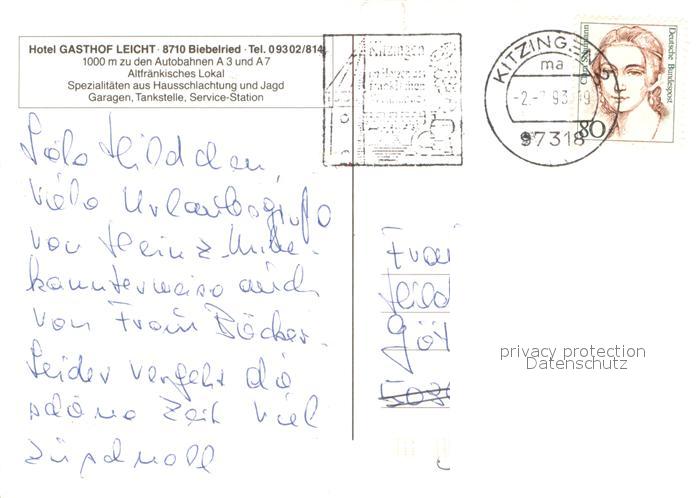 Hotel GASTHOF LEICHT · 8710 Biebelried · Tel. 09302/814
1000 m zu den Autobahnen A 3 und A 7
Altfränkisches Lokal
Spezialitäten aus Hausschlachtung und Jagd
Garagen, Tankstelle, Service-Station
Kitzingen
KITZINGEN
ma
97318
Deutsche Bundespost
80
Hildchen,
viele Urlaubsgrüße
von Heinz. Unbe-
kannterweise auch
von Frau Böcker.
Leider vergeht die
schöne Zeit viel
Frau
Hild
Göt
privacy protection
Datenschutz